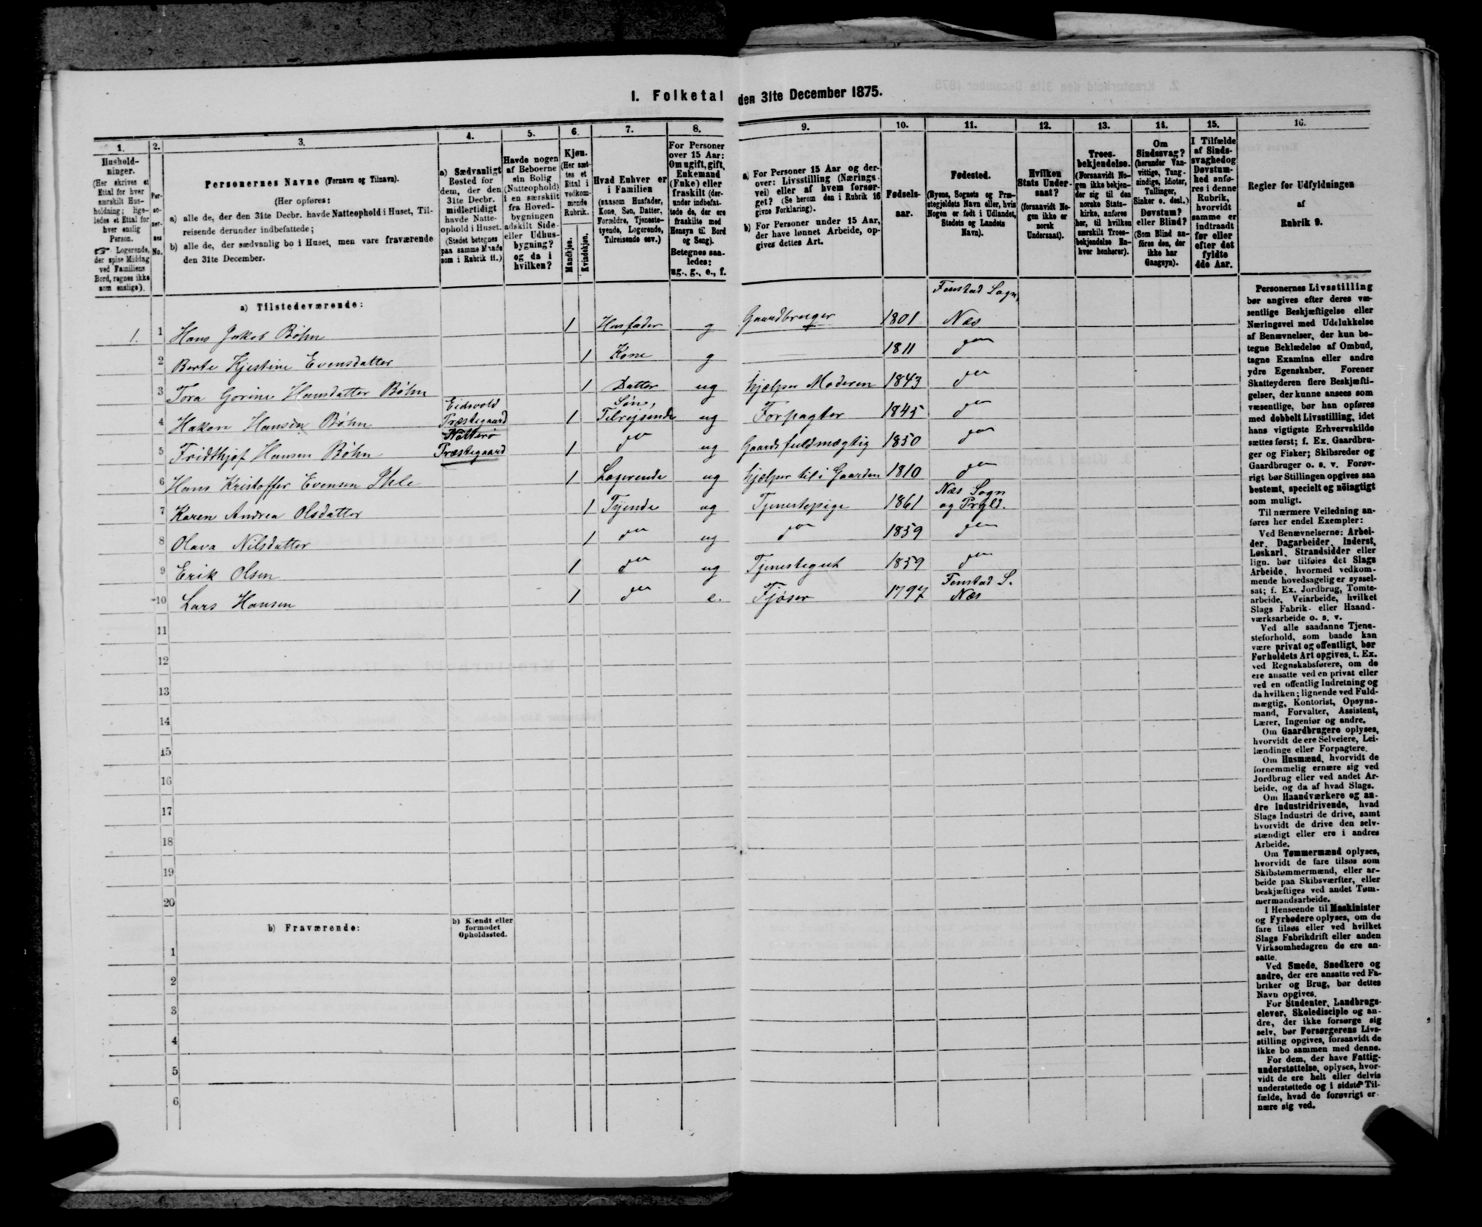 1. Folketal den 31te December 1875.
1.
Husholdninger.
(Her skrives et Ettal for hver særskilt Husholdning; ligeledes et Ettal for hver enslig Person.
Logerende, der spise Middag ved Familiens Bord, regnes ikke som enslige).
2.
Personernes No.
3.
Personernes Navne (Fornavn og Tilnavn).
(Her opføres:
a) alle de, der den 31te Decbr. havde Natteophold i Huset, Tilreisende derunder indbefattede;
b) alle de, der sædvanlig bo i Huset, men vare fraværende den 31te December.
4.
a) Sædvanligt Bosted for dem, der den 31te Decbr. midlertidigt havde Natteophold i Huset.
(Stedet betegnes paa samme Maade som i Rubrik 11.)
5.
Havde nogen af Beboerne sin Bolig (Natteophold) i en særskilt fra Hovedbygningen adskilt Side- eller Udhusbygning? og da i hvilken?
6.
Kjøn.
(Her sættes et Ettal i vedkommende Rubrik.
Mandkjøn.
Kvindekjøn.
7.
Hvad Enhver er i Familien
(saasom Husfader, Kone, Søn, Datter, Forældre, Tjenestetyende, Logerende, Tilreisende osv.)
8.
For Personer over 15 Aar: Om ugift, gift, Enkemand (Enke) eller fraskilt (derunder indbefattede de, der ere fraskilte med Hensyn til Bord og Seng).
Betegnes saaledes: ug., g., e., f.
9.
a) For Personer 15 Aar og derover: Livsstilling (Næringsvei) eller af hvem forsørget? (Se herom den i Rubrik 16 givne Forklaring).
b) For Personer under 15 Aar, der have lønnet Arbeide, opgives dettes Art.
10.
Fødselsaar.
11.
Fødested.
(Byens, Sognets og Præstegjeldets Navn eller, hvis Nogen er født i Udlandet, Stedets og Landets Navn).
12.
Hvilken Stats Undersaat?
(forsaavidt Nogen ikke er norsk Undersaat).
13.
Troesbekjendelse.
(Forsaavidt Nogen ikke bekjender sig til den norske Statskirke, anføres her, til hvilken særskilt Troesbekjendelse Enhver henhører).
14.
Om Sindssvag?
(herunder Vanvittige, Tungsindige, Idioter, Tullinger, Sinker o. desl.)
Døvstum? eller Blind?
(Som Blind anføres den, der ikke har Gangsyn).
15.
I Tilfælde af Sindssvaghed og Døvstumhed anføres i denne Rubrik, hvorvidt samme er indtraadt før eller efter det fyldte 4de Aar.
16.
Regler for Udfyldningen
af
Rubrik 9.
a) Tilstedeværende:
1. 1 Hans Jakob Bøhn 1 Husfader g Gaardbruger 1801 Fenstad Sogn, Næs
2 Berte Kjestine Evensdatter 1 Kone g 1811 do
3 Tora Gorine Hansdatter Bøhn 1 Datter ug hjælper Moderen 1843 do
4 Hakon Hansen Bøhn Eidsvold Præstegaard 1 Søn, Tilreisende ug Forpagter 1845 do
5 Fridthjof Hansen Bøhn Præstegaard 1 do ug Gaardsfuldmægtig 1850 do
6 Hans Kristoffer Evensen Ihle 1 Logerende ug hjælper til i Gaarden 1810 do
7 Karen Andrea Olsdatter 1 Tyende ug Tjenestepige 1861 Næs Sogn og Prgld.
8 Olava Nilsdatter 1 do ug do 1859 do
9 Erik Olsen 1 do ug Tjenestegut 1859 do
10 Lars Hansen 1 do e. Fjøser 1797 Fenstad S. Næs
11
12
13
14
15
16
17
18
19
20
b) Fraværende:
b) Kjendt eller formodet Opholdssted.
1
2
3
4
5
6
Personernes Livsstilling bør angives efter deres væsentlige Beskjæftigelse eller Næringsvei med Udelukkelse af Benævnelser, der kun betegne Beklædelse af Ombud, tagne Examina eller andre ydre Egenskaber. Forener Skatteyderen flere Beskjæftigelser, der kunne ansees som væsentlige, bør han opføres med dobbelt Livsstilling, idet hans vigtigste Erhvervskilde sættes først; f. Ex. Gaardbruger og Fisker; Skibsreder og Gaardbruger o. s. v. Forøvrigt bør Stillingen opgives saa bestemt, specielt og nøiagtigt som muligt.
Til nærmere Veiledning anføres her endel Exempler:
Ved Benævnelserne: Arbeider, Dagarbeider, Inderst, Løskarl, Strandsidder eller lign. bør tilføies det Slags Arbeide, hvormed vedkommende hovedsagelig er sysselsat; f. Ex. Jordbrug, Tomtearbeide, Veiarbeide, hvilket Slags Fabrik- eller Haandværksarbeide o. s. v.
Ved alle saadanne Tjenesteforhold, som baade kan være privat og offentligt, bør Forholdets Art opgives, t. Ex. ved Regnskabsførere, om de ere ansatte ved en privat eller ved en offentlig Indretning og da hvilken; lignende ved Fuldmægtig, Kontorist, Opsynsmand, Forvalter, Assistent, Lærer, Ingeniør og andre.
Om Gaardbrugere oplyses, hvorvidt de ere Selveiere, Leilændinge eller Forpagtere.
Om Husmænd, hvorvidt de fornemmelig ernære sig ved Jordbrug eller ved andet Arbeide, og da af hvad Slags.
Om Haandværkere og andre Industridrivende, hvad Slags Industri de drive, samt hvorvidt de drive den selvstændigt eller ere i andres Arbeide.
Om Tømmermænd oplyses, hvorvidt de fare tilsøs som Skibstømmermænd, eller arbeide paa Skibsværfter, eller beskjæftiges ved andet Tømmermandsarbeide.
I Henseende til Maskinister og Fyrbødere oplyses, om de fare tilsøs eller ved hvilket Slags Fabrikdrift eller anden Virksomhedsgren de ere ansatte.
Ved Smede, Snedkere og andre, der ere ansatte ved Fabriker og Brug, bør dettes Navn opgives.
For Studenter, Landbrugselever, Skoledisciple og andre, der ikke forsørge sig selv, bør Forsørgerens Livsstilling opgives, forsaavidt de ikke bo sammen med denne.
For dem, der have Fattigunderstøttelse, oplyses, hvorvidt de ere helt eller delvis understøttede og i sidste Tilfælde, hvad de forøvrigt ernære sig ved.